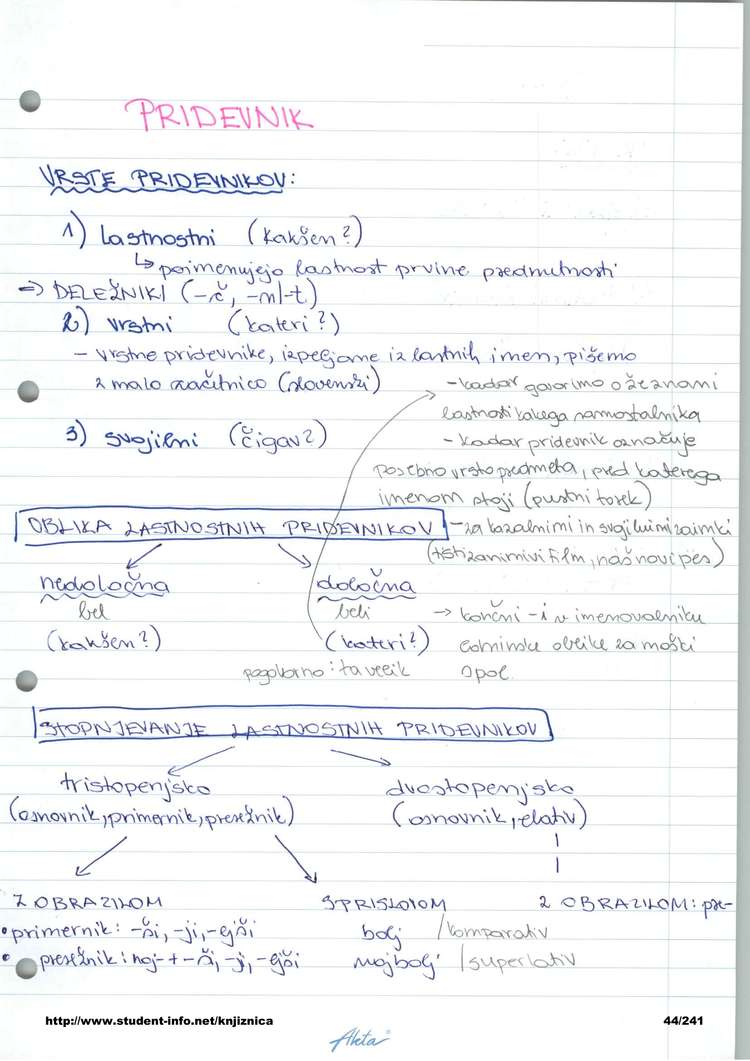 PRIDEVNIK
VRSTE PRIDEVNIKOV:
1) lastnostni (kakšen?)
↳ poimenujejo lastnost prvine predmetnosti
⇒ DELEŽNIKI (-č, -n/-t)
2) vrstni (kateri?)
- vrstne pridevnike, izpeljane iz lastnih imen, pišemo
z malo začetnico (slovenski)
- kadar govorimo o že znani
lastnosti takega samostalnika
3) svojilni (čigav?)
- kadar pridevnik označuje
posebno vrsto predmeta, pred katerega
imenom stoji (pustni torek)
OBLIKA LASTNOSTNIH PRIDEVNIKOV
- za kazalnimi in svojilnimi zaimki
(tisti zanimivi film, naš novi pes)
nedoločna
določna
bel
beli
→ končni -i v imenovalniku
(kakšen?)
(kateri?)
edninske oblike za moški
pogovorno: ta velik
spol
STOPNJEVANJE LASTNOSTNIH PRIDEVNIKOV
tristopenjsko
dvostopenjsko
(osnovnik, primernik, presežnik)
(osnovnik, elativ)
Z OBRAZILOM
S PRISLOVOM
Z OBRAZILOM: pre-
• primernik: -ši, -ji, -ejši
bolj /komparativ
• presežnik: naj- + -ši, -ji, -ejši
najbolj /superlativ
http://www.student-info.net/knjiznica
44/241
Akta